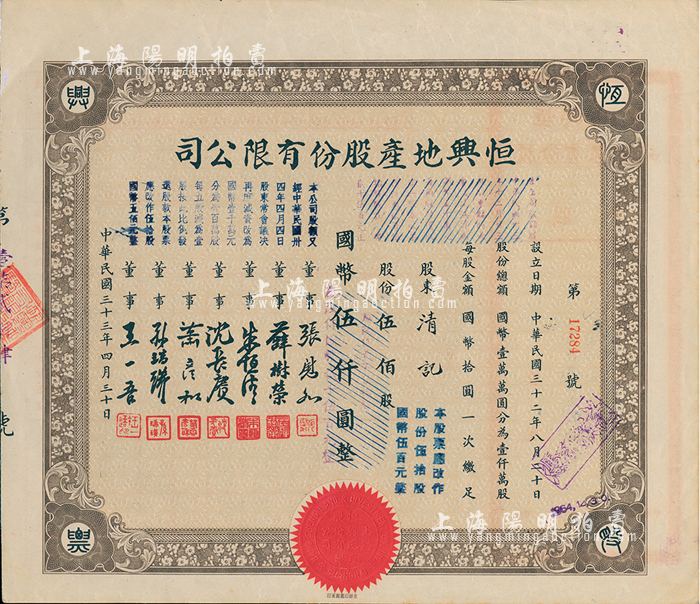 上海陽明拍賣
www.yangmingauction.com
恆
興
恒興地產股份有限公司
設立日期 中華民國三十二年八月二十日
股份總額 國幣壹萬萬圓分為壹仟萬股
每股金額 國幣拾圓一次繳足
第 17284 號
股東 清記
股份伍佰股
國幣伍仟圓整
本股票應改作
股份伍拾股
國幣伍百元整
本公司股額又
經中華民國卅
四年四月四日
股東常會議決
再
國幣壹千萬元
應改作伍拾股
國幣伍佰元整
董事 張慰如
董事 薛
董事 朱
董事 沈長賡
董事
董事 孫瑞璜
董事 王一吾
中華民國三十三年四月三十日
上海陽明拍賣
www.yangmingauction.com
上海陽明拍賣
www.yangmingauction.com